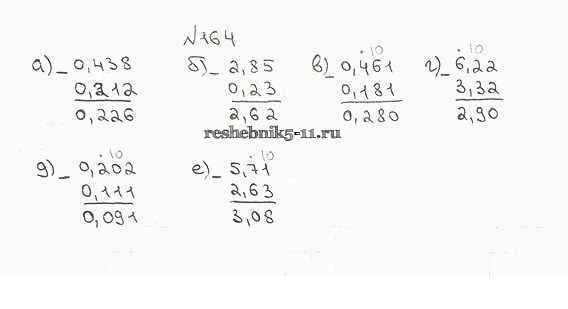 №164
а) - 0,438 б) - 2,85 в) - 0,461 г) - 6,22
0,212 0,23 0,181 3,32
0,226 2,62 0,280 2,90
reshebnik5-11.ru
д) - 0,202 е) - 5,71
0,111 2,63
0,091 3,08